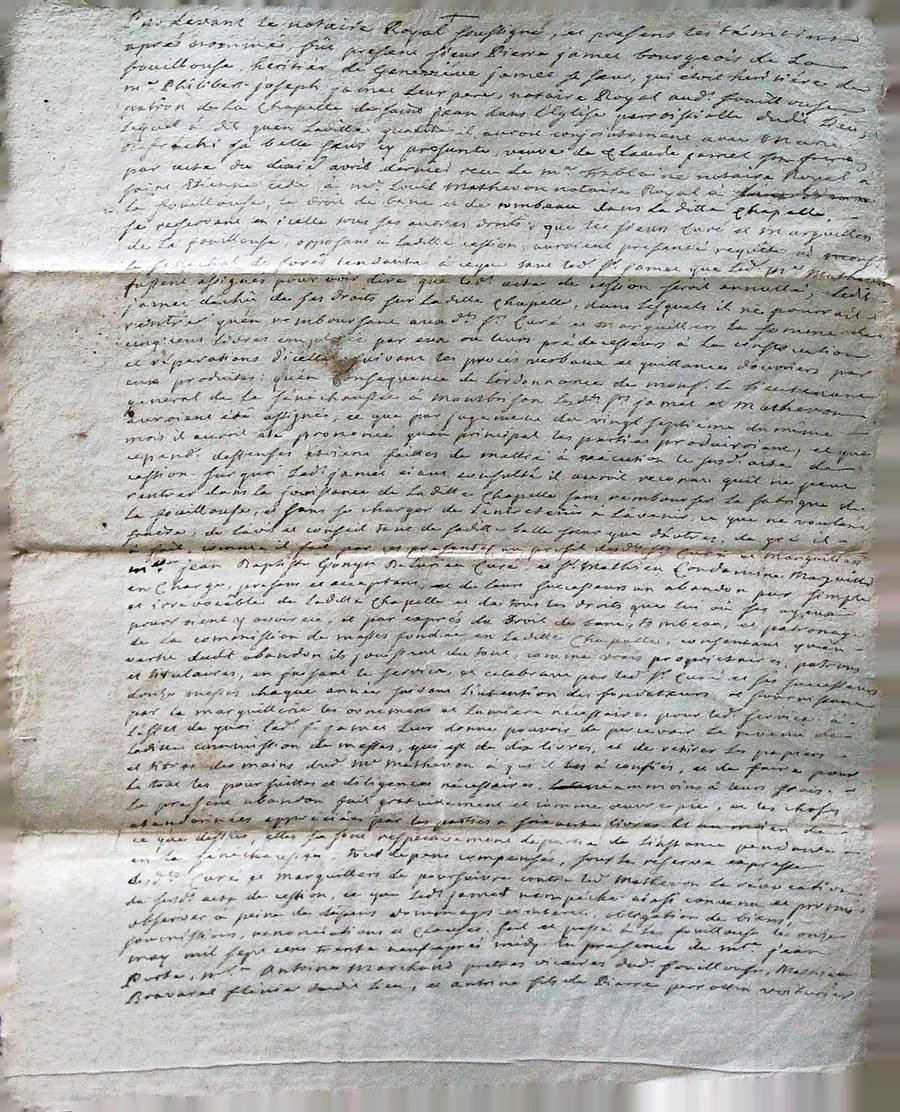 Pardevant le notaire Royal soussigné, et presens les temoins
après nommés, fût present sieur Pierre jamet bourgeois de La
fouillouse heritier de Genevieve jamet sa sœur, qui etoit heritiere de
mre Philibert joseph jamet leur pere, notaire Royal aud. fouillouse
patron de la Chapelle de saint jean dans l'Eglise parroissialle dudit lieu,
lequel a dit qu'en laditte qualité il auroit conjointement avec
sa belle sœur cy presente, veuve de Claude jamet son frere,
par acte du avril dernier reçu de me notaire Royal a
saint Etienne cedé à mre Louis Mathevon notaire Royal à
la fouillouse, le droit de banc et de tombeau dans la ditte Chapelle,
se reservant en icelle tous ses autres droits, que les sieurs Curé et marguilliers
de la fouillouse, opposans a laditte cession, auroient presenté requête à
de forès tendante à ceque tant led. sr jamet que led. me Mathevon
fussent assignés pour voir dire que led. acte de cession seroit annullé, ledit
jamet dechu de ses droits sur laditte Chapelle, dans lesquels il ne pourroit
rentrer qu'en remboursant auxds. srs Curé et Marguilliers la somme de
cinq cens livres par eux ou leurs predecesseurs à la construction
et reparations d'icelle suivant les procés verbaux et quittances d'ouvriers par
eux produites: qu'en consequence de l'ordonnance de monsr le lieutenant
general de la senechaussée à montbrison lesds. srs jamet et Mathevon
auroient été assignés, et que par jugement du vingt septieme du même
mois il auroit été prononcé qu'au principal les parties produiroient, et que
cepend. deffenses etoient faites de mettre à execution le susd. acte de
cession. surquoi led. jamet aiant consulté il auroit reconnu qu'il ne peut
rentrer dans la jouissance de laditte Chapelle sans rembourser la fabrique de
la fouillouse, et sans se charger de l'entretien à l'avenir, ce que ne voulant
faire, de l'avis et conseil tant de saditte belle sœur que d'autres, de gré il
a fait, comme il fait par ces presentes au profit desds. srs Curé et Marguilliers
mre jean Baptiste Gonyn Curé et sr Mathieu Condamine Marguillier
en charge, presens et acceptans et de leurs successeurs un abandon pur simple
et irrevocable de laditte Chapelle et de tous les droits que lui où ses ayeux
pourroient y avoir eu, et par exprés du droit de banc, tombeau, et patronage
de la commission de messes fondée en laditte Chapelle, consentant qu'en
vertu dudit abandon ils jouissent du tout, comme vrais proprietaires, patrons
et titulaires, en faisant le service, et celebrant par led. sr Curé et ses successeurs
douze messes chaque année suivant l'intention des fondateurs, et fournissant
par la marguillerie les ornemens et lumiere necessaires pour led. service, à
l'effet de quoi led. sr jamet leur donne pouvoir de percevoir le revenu de
laditte commission de messes, qui est de dix livres, et de retirer les papiers
et titres des mains dud. me Mathevon à qui il les à confiés, et de faire pour
le tout les poursuittes et diligences necessaires. neammoins à leurs frais.
le present abandon fait gratuitement et comme œuvre pie, et les choses
abandonnées appreciées par les parties a soixante livres. Et au moien de
ce que dessus, elles se sont respectivement departie de l'instance pendante
en la senechaussée, tous depens compensés, sous la reserve expresse
desds. Curé et marguilliers de poursuivre contre led. Mathevon la revocation
du susd. acte de cession, ce que led. jamet n'empeche ainsi convenu et promis
observer à peine de depens dommages et interets obligation de biens,
soumissions, renonciations et clauses, fait et passé à la fouillouse le onze
may mil sept cens trente neuf après midy. En presence de mre jean
Porte, mre Antoine Marchand pretres vicaires dud. fouillouse, Mathieu
dudit lieu, et antoine fils de Pierre voiturier